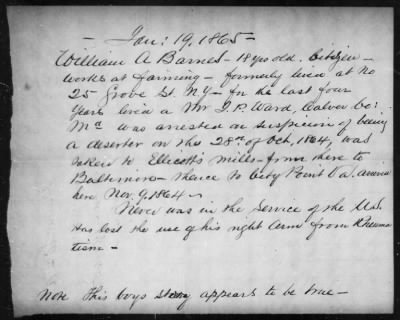 — Jan: 19, 1865 —
William A Barnes — 18 yrs old. Citizen —
works at farming — formerly lived at No
25 Grove St. N.Y — for the last four
years lived a Mr J.P. Ward, Calver Co:
Md was arrested on suspicion of being
a deserter on the 28th of Oct, 1864, was
taken to Ellecott's Mills — from there to
Baltimore — thence to City Point Va. arrived
here Nov 9, 1864 —
Never was in the service of the U.S.
Has lost the use of his right arm from Rheuma
tism —
Note This boys story appears to be true —